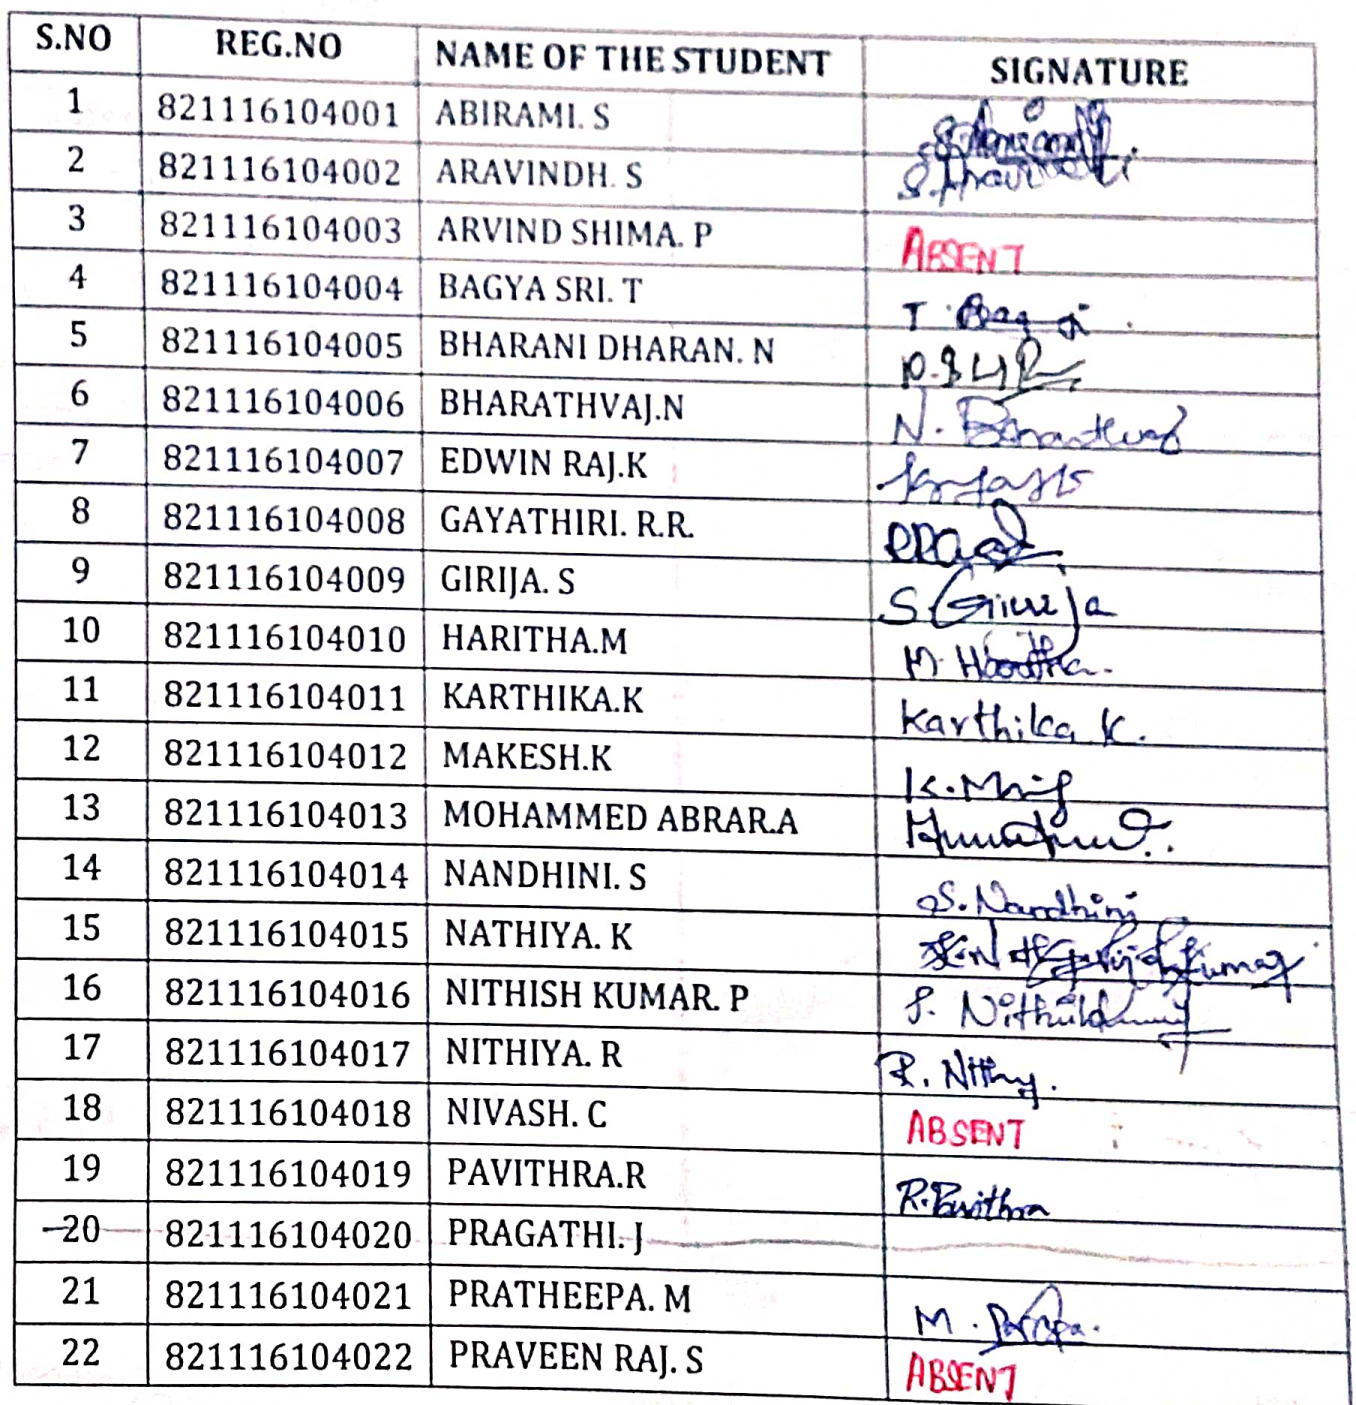 S.NO REG.NO NAME OF THE STUDENT SIGNATURE
1 821116104001 ABIRAMI. S
2 821116104002 ARAVINDH. S
3 821116104003 ARVIND SHIMA. P ABSENT
4 821116104004 BAGYA SRI. T T.
5 821116104005 BHARANI DHARAN. N
6 821116104006 BHARATHVAJ.N N. Bharathvaj
7 821116104007 EDWIN RAJ.K
8 821116104008 GAYATHIRI. R.R.
9 821116104009 GIRIJA. S S. Girija
10 821116104010 HARITHA.M M. Haritha.
11 821116104011 KARTHIKA.K Karthika K.
12 821116104012 MAKESH.K K.
13 821116104013 MOHAMMED ABRAR.A
14 821116104014 NANDHINI. S S. Nandhini
15 821116104015 NATHIYA. K
16 821116104016 NITHISH KUMAR. P P.
17 821116104017 NITHIYA. R R. Nithy.
18 821116104018 NIVASH. C ABSENT
19 821116104019 PAVITHRA.R R. Pavithra
20 821116104020 PRAGATHI. J
21 821116104021 PRATHEEPA. M M.
22 821116104022 PRAVEEN RAJ. S ABSENT